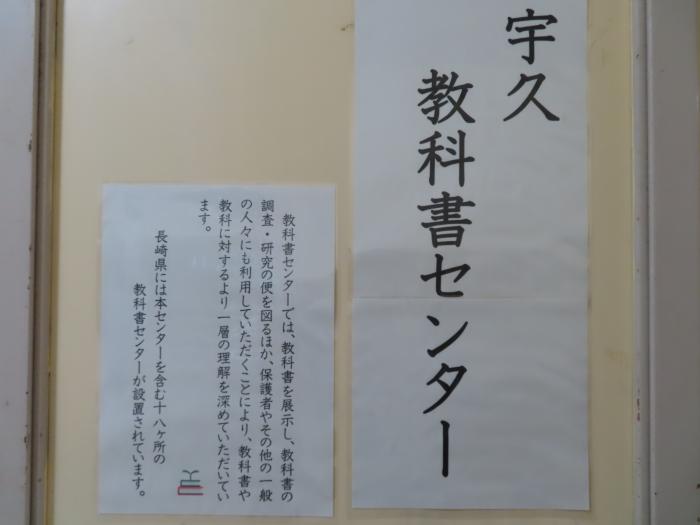 宇久
教科書センター
教科書センターでは、教科書を展示し、教科書の
調査・研究の便を図るほか、保護者やその他の一般
の人々にも利用していただくことにより、教科書や
教科に対するより一層の理解を深めていただいてい
ます。
長崎県には本センターを含む十八ヶ所の
教科書センターが設置されています。